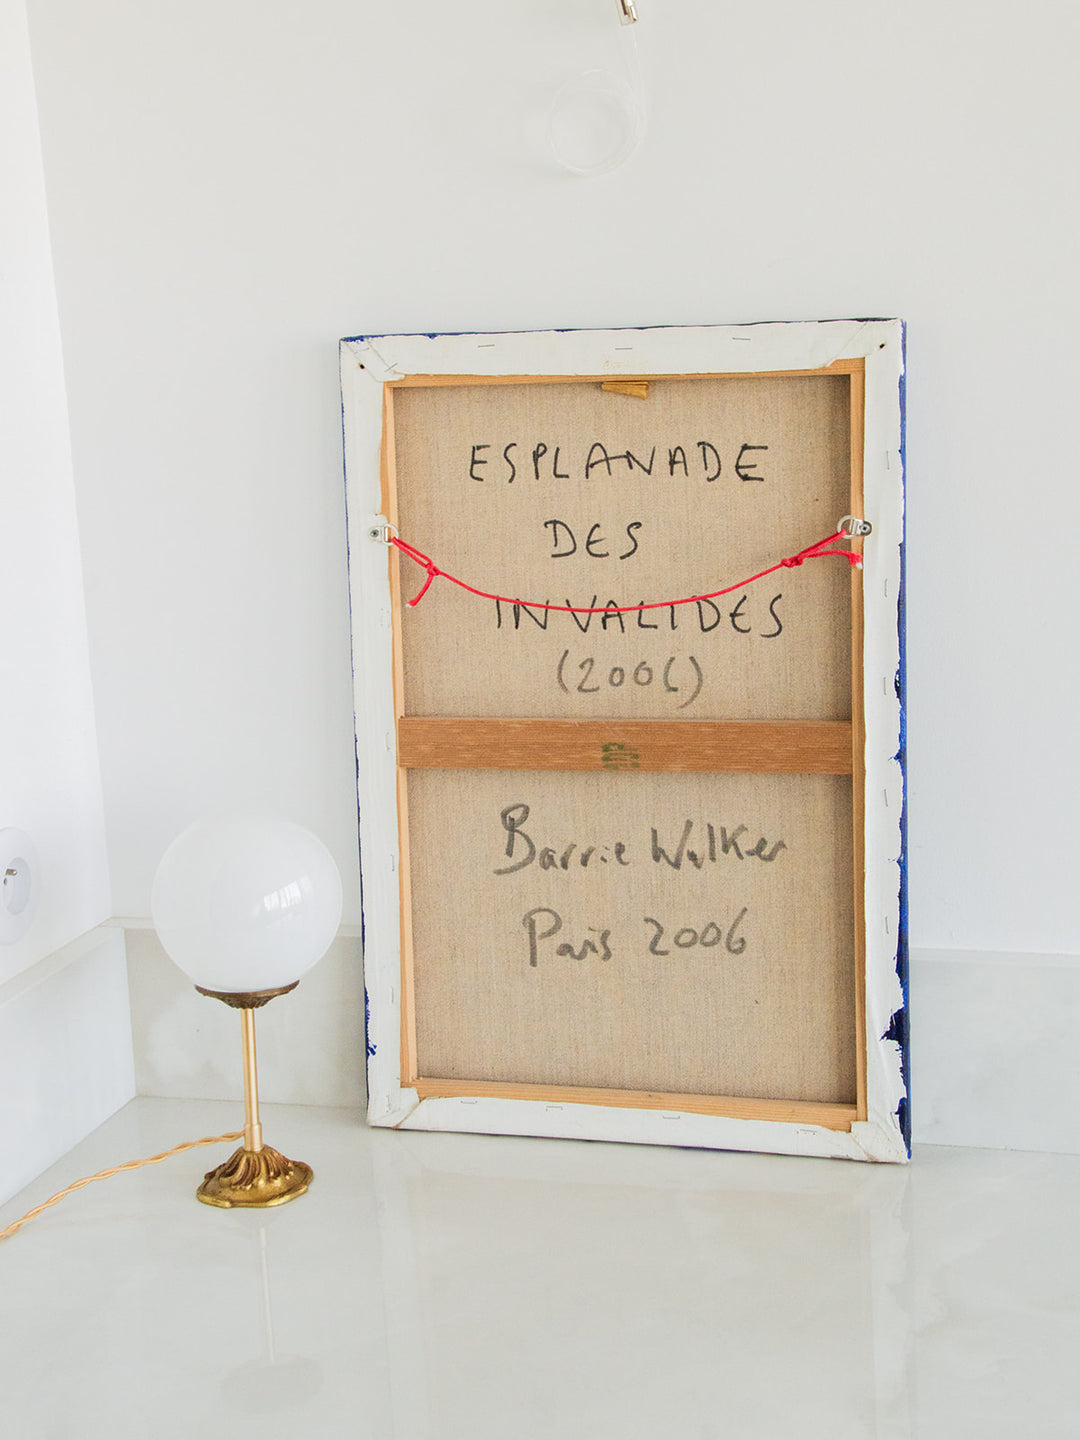 ESPLANADE
DES
INVALIDES
(2006)
Barrie Walker
Paris 2006